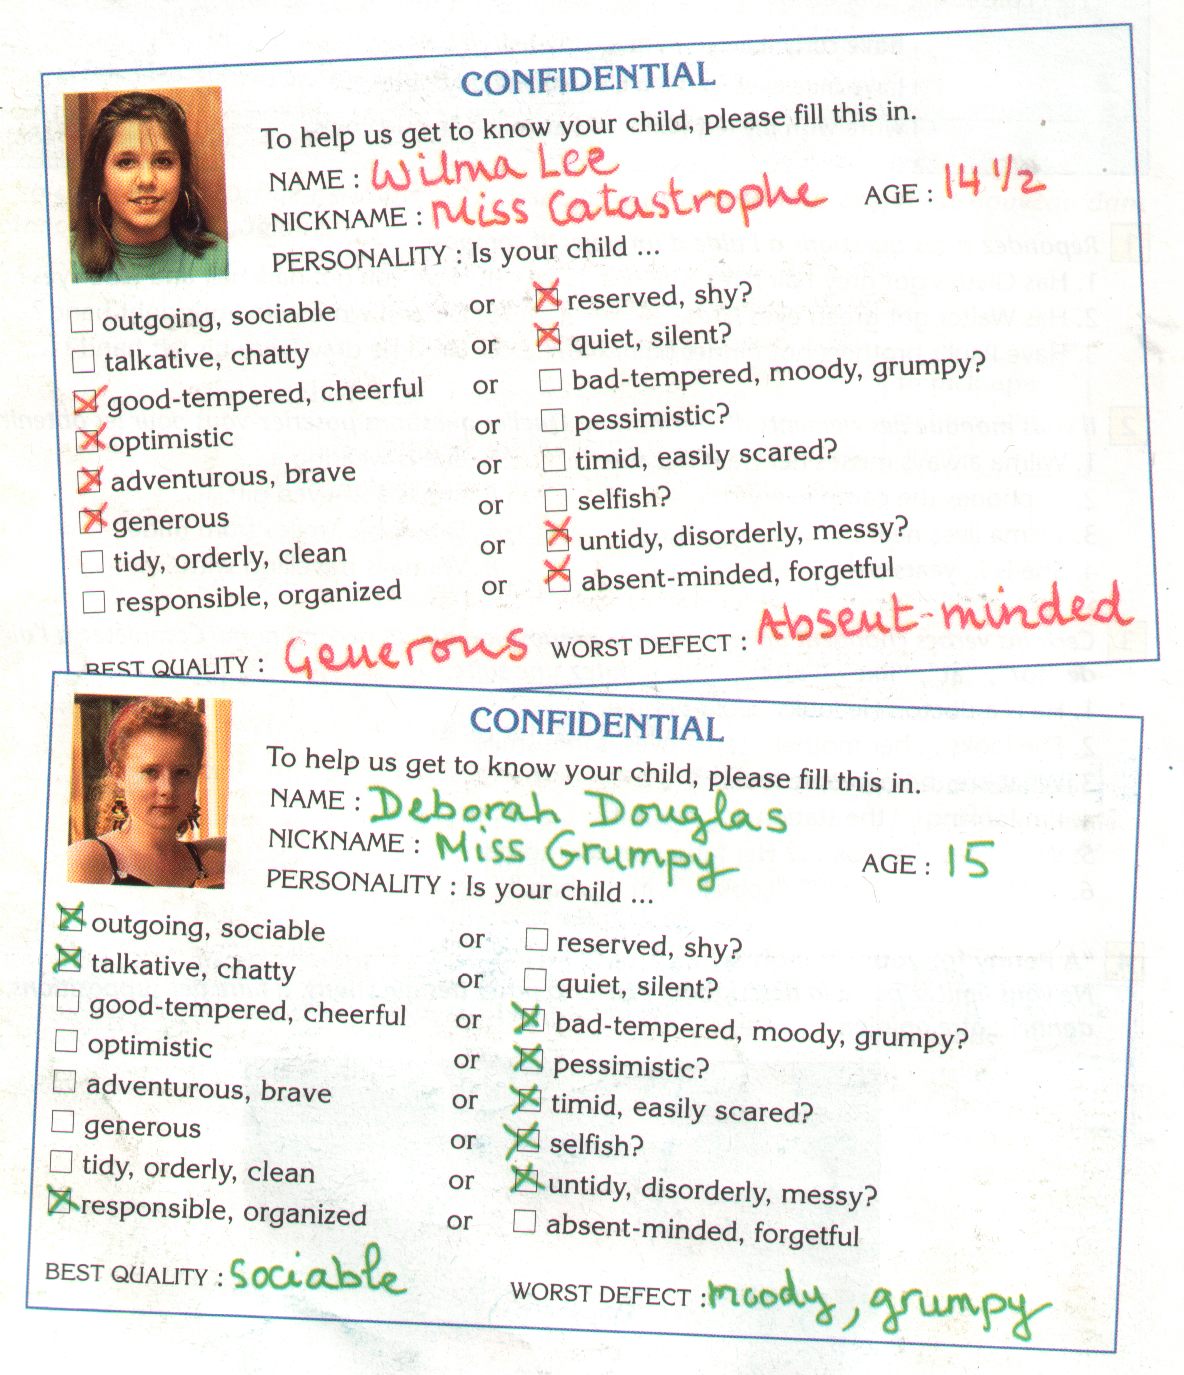 CONFIDENTIAL
To help us get to know your child, please fill this in.
NAME : Wilma Lee
NICKNAME : Miss Catastrophe AGE : 14 1/2
PERSONALITY : Is your child ...
outgoing, sociable or reserved, shy?
talkative, chatty or quiet, silent?
good-tempered, cheerful or bad-tempered, moody, grumpy?
optimistic or pessimistic?
adventurous, brave or timid, easily scared?
generous or selfish?
tidy, orderly, clean or untidy, disorderly, messy?
responsible, organized or absent-minded, forgetful
BEST QUALITY : Generous WORST DEFECT : Absent-minded
CONFIDENTIAL
To help us get to know your child, please fill this in.
NAME : Deborah Douglas
NICKNAME : Miss Grumpy AGE : 15
PERSONALITY : Is your child ...
outgoing, sociable or reserved, shy?
talkative, chatty or quiet, silent?
good-tempered, cheerful or bad-tempered, moody, grumpy?
optimistic or pessimistic?
adventurous, brave or timid, easily scared?
generous or selfish?
tidy, orderly, clean or untidy, disorderly, messy?
responsible, organized or absent-minded, forgetful
BEST QUALITY : sociable WORST DEFECT : moody, grumpy